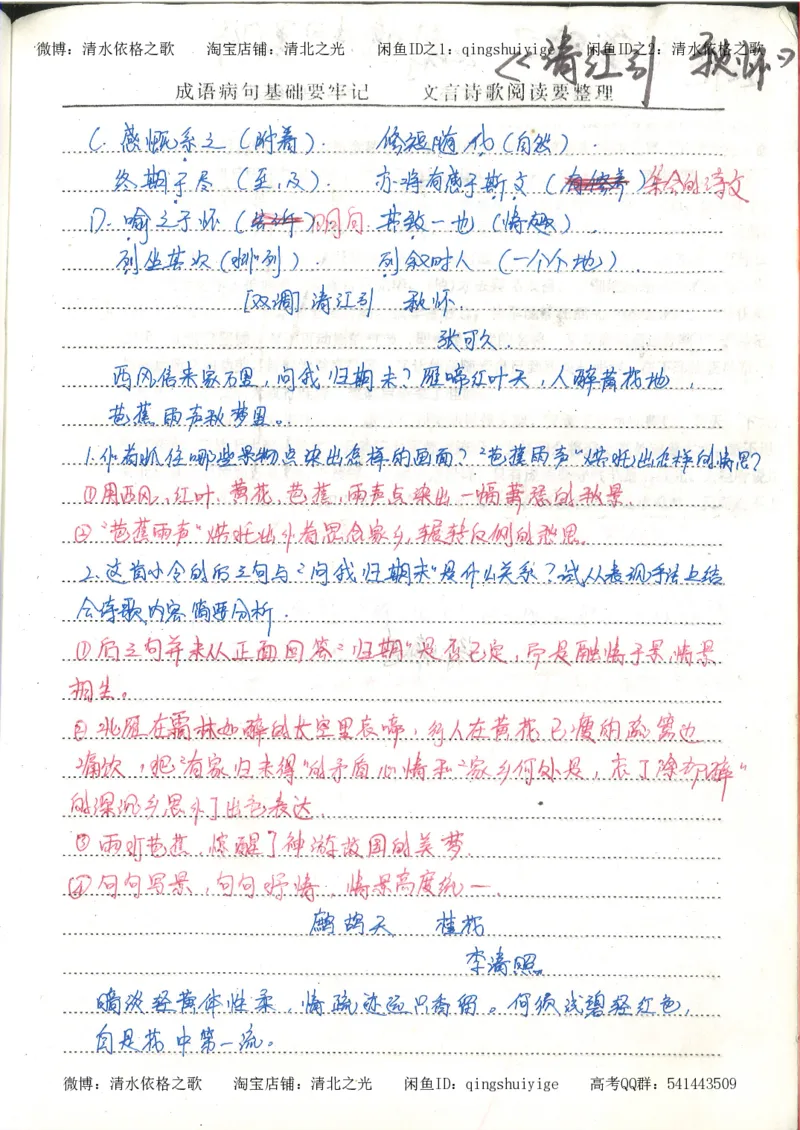 微博：清水依格之歌 淘宝店铺：清北之光 闲鱼ID之1：qingshuiyige 闲鱼ID之2：清水依格之歌
《清江引 秋怀》
成语病句基础要牢记 文言诗歌阅读要整理
C. 感慨系之（附着）. 修短随化（自然）.
终期于尽（至，及）. 亦将有感于斯文（集会的诗文
D. 喻之于怀（明白 其致一也（情趣）.
列坐其次（排列）. 列叙时人（一个个地）.
[双调] 清江引 秋怀.
张可久.
西风信来家万里，问我归期未？雁啼红叶天，人醉黄花地，
芭蕉雨声秋梦里。
1. 作者抓住哪些景物点染出怎样的画面？“芭蕉雨声”烘托出怎样的情思？
①用西风，红叶，黄花，芭蕉，雨声点染出一幅萧瑟的秋景
②“芭蕉雨声”烘托出作者思念家乡，辗转反侧的愁思.
2. 这首小令的后三句与“问我归期未”是什么关系？试从表现手法上结
合诗歌内容简要分析.
①后三句并未从正面回答“归期”是否已定，而是融情于景，情景
相生。
②北雁在霜林如醉的长空里哀啼，行人在黄花已瘦的疏篱边
痛饮，把“有家归未得”的矛盾心情和“家乡何处是，忘了除却醉”
的深沉乡思作了出色表达.
③雨打芭蕉，惊醒了神游故国的美梦.
④句句写景，句句抒情，情景高度统一.
鹧鸪天 桂花
李清照
暗淡轻黄体性柔，情疏迹远只香留。何须浅碧轻红色，
自是花中第一流。
微博：清水依格之歌 淘宝店铺：清北之光 闲鱼ID：qingshuiyige 高考QQ群：541443509